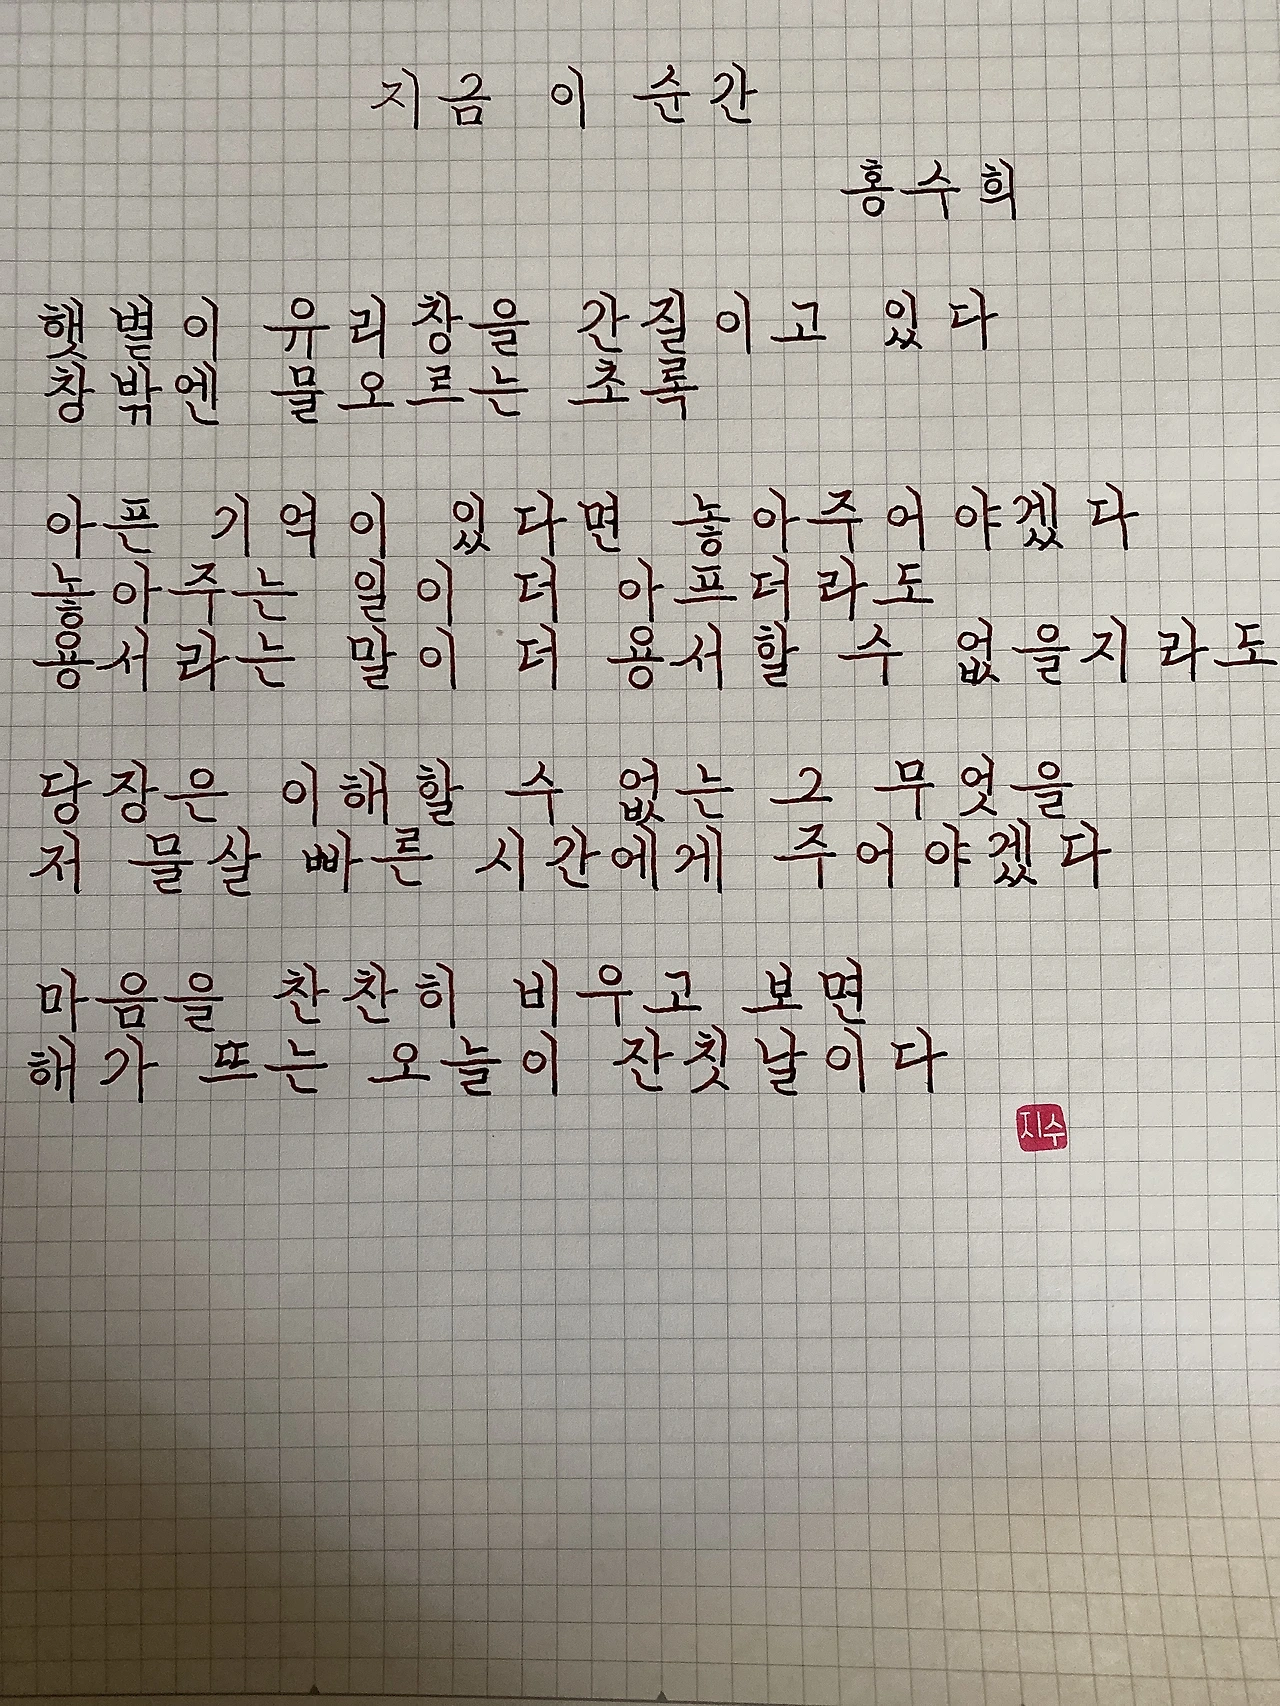 지금 이 순간
홍수희
햇볕이 유리창을 간질이고 있다
창밖엔 물오르는 초록
아픈 기억이 있다면 놓아주어야겠다
놓아주는 일이 더 아프더라도
용서라는 말이 더 용서할 수 없을지라도
당장은 이해할 수 없는 그 무엇을
저 물살 빠른 시간에게 주어야겠다
마음을 찬찬히 비우고 보면
해가 뜨는 오늘이 잔칫날이다
지수